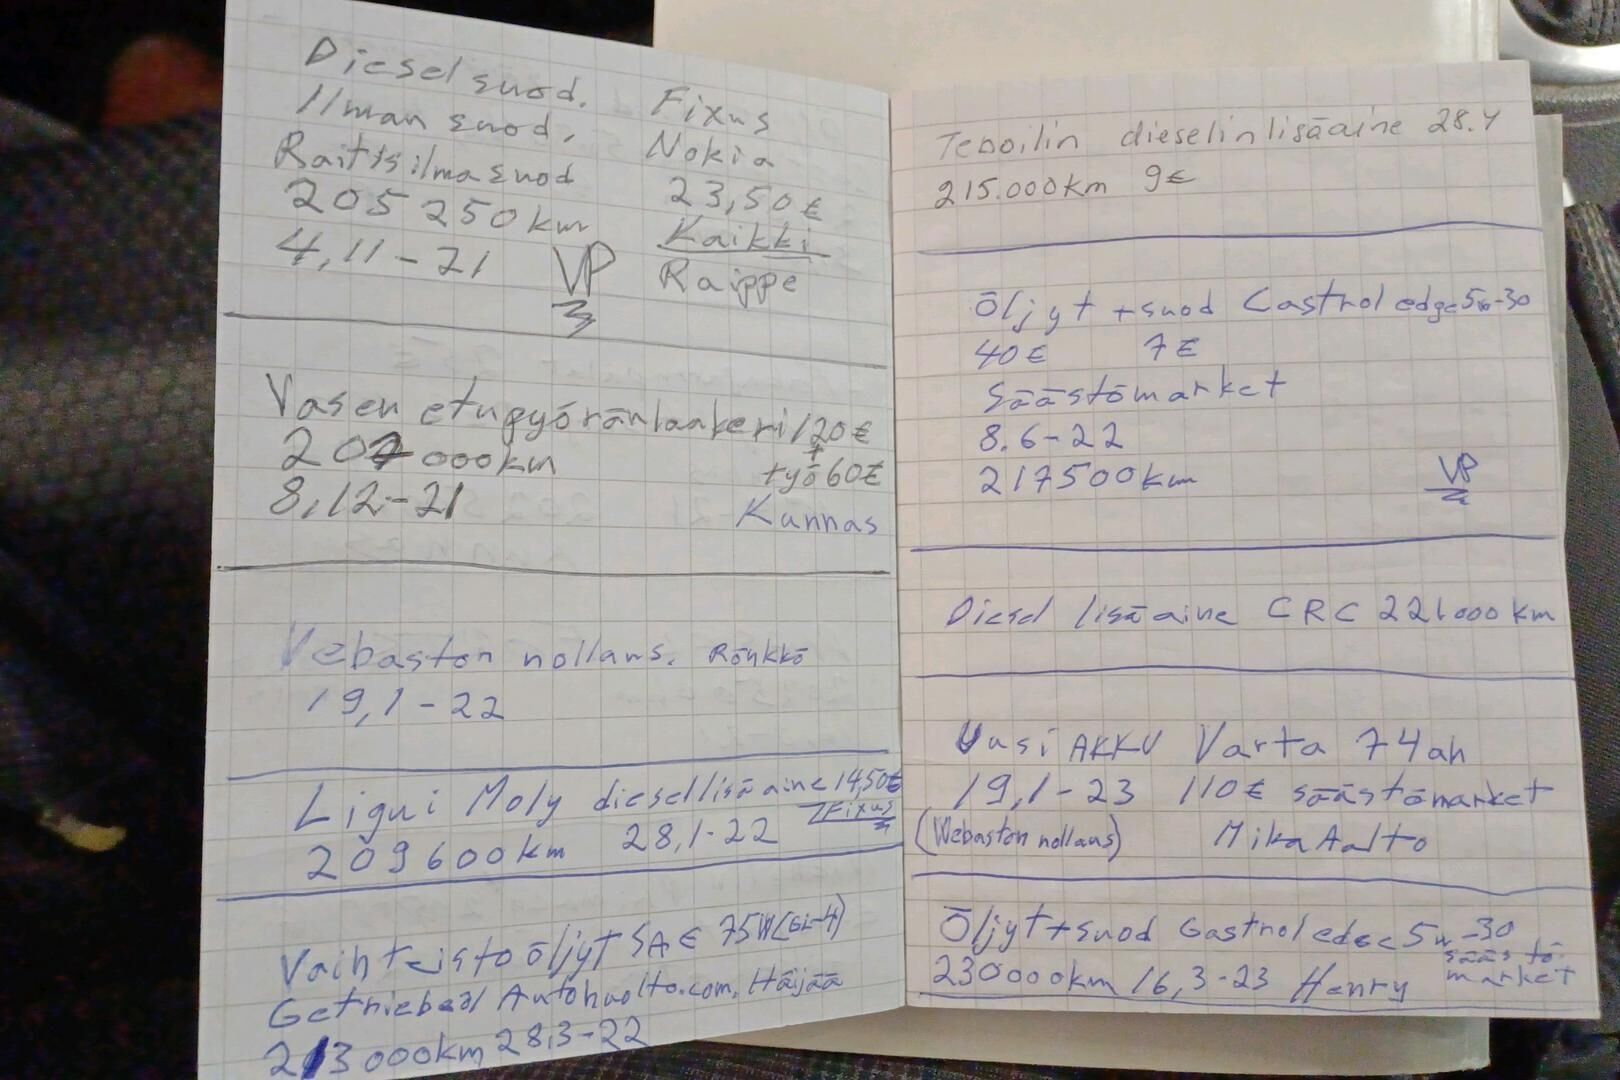 Diesel suod.
Ilman suod,
Raitis ilma suod
205 250 km
4,11-21 VP
Fixus
Nokia
23,50€
Kaikki
Raippe
Vasen etupyöränlaakeri 120€
207 000km + työ 60€
8,12-21 Kannas
Vebaston nollaus. Rönkkö
19,1-22
Liqui Moly diesellisäaine 14,50€
209600km 28,1-22 Fixus
Vaihteistoöljyt SAE 75W(GL-4)
Getriebeöl Autohuolto.com, Häijää
213 000km 28,3-22
Teboilin dieselinlisäaine 28.4
215.000km 9€
Öljyt +suod Castrol edge 5w-30
40€ 7€
Säästömarket
8.6-22
217500km VP
Diesel lisäaine CRC 221000 km
Uusi AKKU Varta 74ah
19,1-23 110€ säästömarket
(Webaston nollaus) Mika Aalto
Öljyt+suod Castrol edge 5w-30
230000km 16,3-23 Henry säästömarket